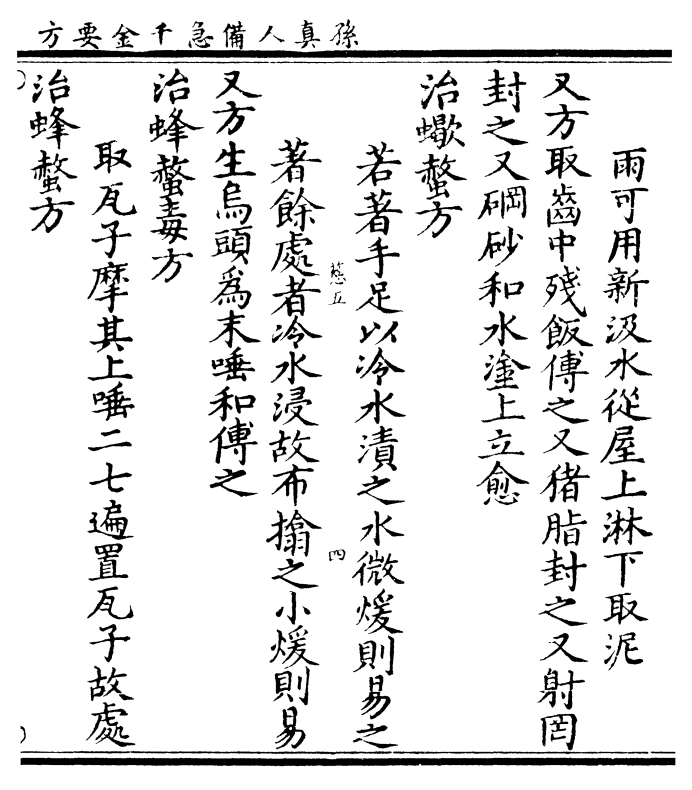 孫真人備急千金要方
雨可用新汲水從屋上淋下取泥
又方取齒中殘飯傅之又猪脂封之又射罔
封之又硇砂和水塗上立愈
治蠍螫方
若著手足以冷水漬之水微煖則易之
著餘處者冷水浸故布搨之小煖則易
又方生烏頭爲末唾和傅之
治蜂螫毒方
取瓦子摩其上唾二七遍置瓦子故處
治蜂螫方
四